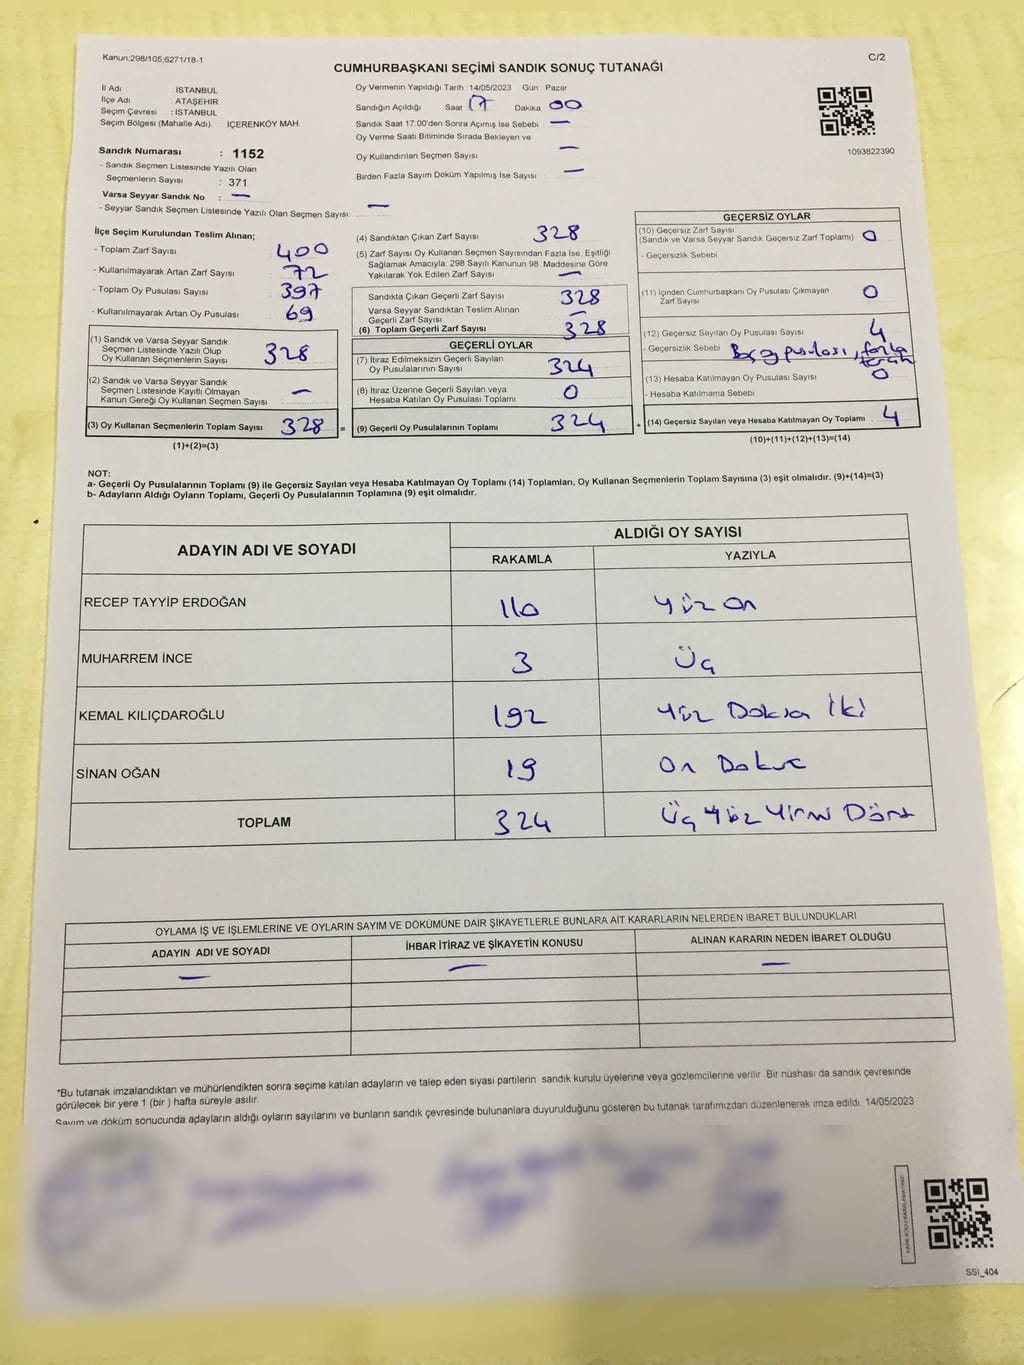 Kanun;298/105,6271/18-1
C/2
CUMHURBAŞKANI SEÇİMİ SANDIK SONUÇ TUTANAĞI
İl Adı : İSTANBUL
İlçe Adı : ATAŞEHİR
Seçim Çevresi : İSTANBUL
Seçim Bölgesi (Mahalle Adı) : İÇERENKÖY MAH.
Sandık Numarası : 1152
- Sandık Seçmen Listesinde Yazılı Olan
Seçmenlerin Sayısı : 371
Varsa Seyyar Sandık No : —
- Seyyar Sandık Seçmen Listesinde Yazılı Olan Seçmen Sayısı —
Oy Vermenin Yapıldığı Tarih 14/05/2023 Gün : Pazar
Sandığın Açıldığı Saat 17 Dakika 00
Sandık Saat 17:00'den Sonra Açımış İse Sebebi —
Oy Verme Saati Bitiminde Sırada Bekleyen ve
Oy Kullandırılan Seçmen Sayısı —
Birden Fazla Sayım Döküm Yapılmış İse Sayısı —
1093822390
İlçe Seçim Kurulundan Teslim Alınan;
- Toplam Zarf Sayısı : 400
- Kullanılmayarak Artan Zarf Sayısı : 72
- Toplam Oy Pusulası Sayısı : 397
- Kullanılmayarak Artan Oy Pusulası : 69
(1) Sandık ve Varsa Seyyar Sandık
Seçmen Listesinde Yazılı Olup
Oy Kullanan Seçmenlerin Sayısı 328
(2) Sandık ve Varsa Seyyar Sandık
Seçmen Listesinde Kayıtlı Olmayan
Kanun Gereği Oy Kullanan Seçmen Sayısı —
(3) Oy Kullanan Seçmenlerin Toplam Sayısı 328 =
(1)+(2)=(3)
(4) Sandıktan Çıkan Zarf Sayısı 328
(5) Zarf Sayısı Oy Kullanan Seçmen Sayısından Fazla İse, Eşitliği
Sağlamak Amacıyla, 298 Sayılı Kanunun 98. Maddesine Göre
Yakılarak Yok Edilen Zarf Sayısı —
Sandıkta Çıkan Geçerli Zarf Sayısı 328
Varsa Seyyar Sandıktan Teslim Alınan
Geçerli Zarf Sayısı —
(6) Toplam Geçerli Zarf Sayısı 328
GEÇERLİ OYLAR
(7) İtiraz Edilmeksizin Geçerli Sayılan
Oy Pusulalarının Sayısı 324
(8) İtiraz Üzerine Geçerli Sayılan veya
Hesaba Katılan Oy Pusulası Toplamı 0
(9) Geçerli Oy Pusulalarının Toplamı 324 +
GEÇERSİZ OYLAR
(10) Geçersiz Zarf Sayısı
(Sandık ve Varsa Seyyar Sandık Geçersiz Zarf Toplamı) 0
- Geçersizlik Sebebi
(11) İçinden Cumhurbaşkanı Oy Pusulası Çıkmayan
Zarf Sayısı 0
(12) Geçersiz Sayılan Oy Pusulası Sayısı 4
- Geçersizlik Sebebi Boş oy pusulası, fazla
(13) Hesaba Katılmayan Oy Pusulası Sayısı 0
- Hesaba Katılmama Sebebi
(14) Geçersiz Sayılan veya Hesaba Katılmayan Oy Toplamı 4
(10)+(11)+(12)+(13)=(14)
NOT:
a- Geçerli Oy Pusulalarının Toplamı (9) ile Geçersiz Sayılan veya Hesaba Katılmayan Oy Toplamı (14) Toplamları, Oy Kullanan Seçmenlerin Toplam Sayısına (3) eşit olmalıdır. (9)+(14)=(3)
b- Adayların Aldığı Oyların Toplamı, Geçerli Oy Pusulalarının Toplamına (9) eşit olmalıdır.
ADAYIN ADI VE SOYADI ALDIĞI OY SAYISI
RAKAMLA YAZIYLA
RECEP TAYYİP ERDOĞAN 110 Yüz On
MUHARREM İNCE 3 Üç
KEMAL KILIÇDAROĞLU 192 Yüz Doksan İki
SİNAN OĞAN 19 On Dokuz
TOPLAM 324 Üç Yüz Yirmi Dört
OYLAMA İŞ VE İŞLEMLERİNE VE OYLARIN SAYIM VE DÖKÜMÜNE DAİR ŞİKAYETLERLE BUNLARA AİT KARARLARIN NELERDEN İBARET BULUNDUKLARI
ADAYIN ADI VE SOYADI İHBAR İTİRAZ VE ŞİKAYETİN KONUSU ALINAN KARARIN NEDEN İBARET OLDUĞU
— — —
*Bu tutanak imzalandıktan ve mühürlendikten sonra seçime katılan adayların ve talep eden siyasi partilerin sandık kurulu üyelerine veya gözlemcilerine verilir. Bir nüshası da sandık çevresinde
görülecek bir yere 1 (bir ) hafta süreyle asılır.
Sayım ve döküm sonucunda adayların aldığı oyların sayılarını ve bunların sandık çevresinde bulunanlara duyurulduğunu gösteren bu tutanak tarafımızdan düzenlenerek imza edildi. 14/05/2023
SSI_404